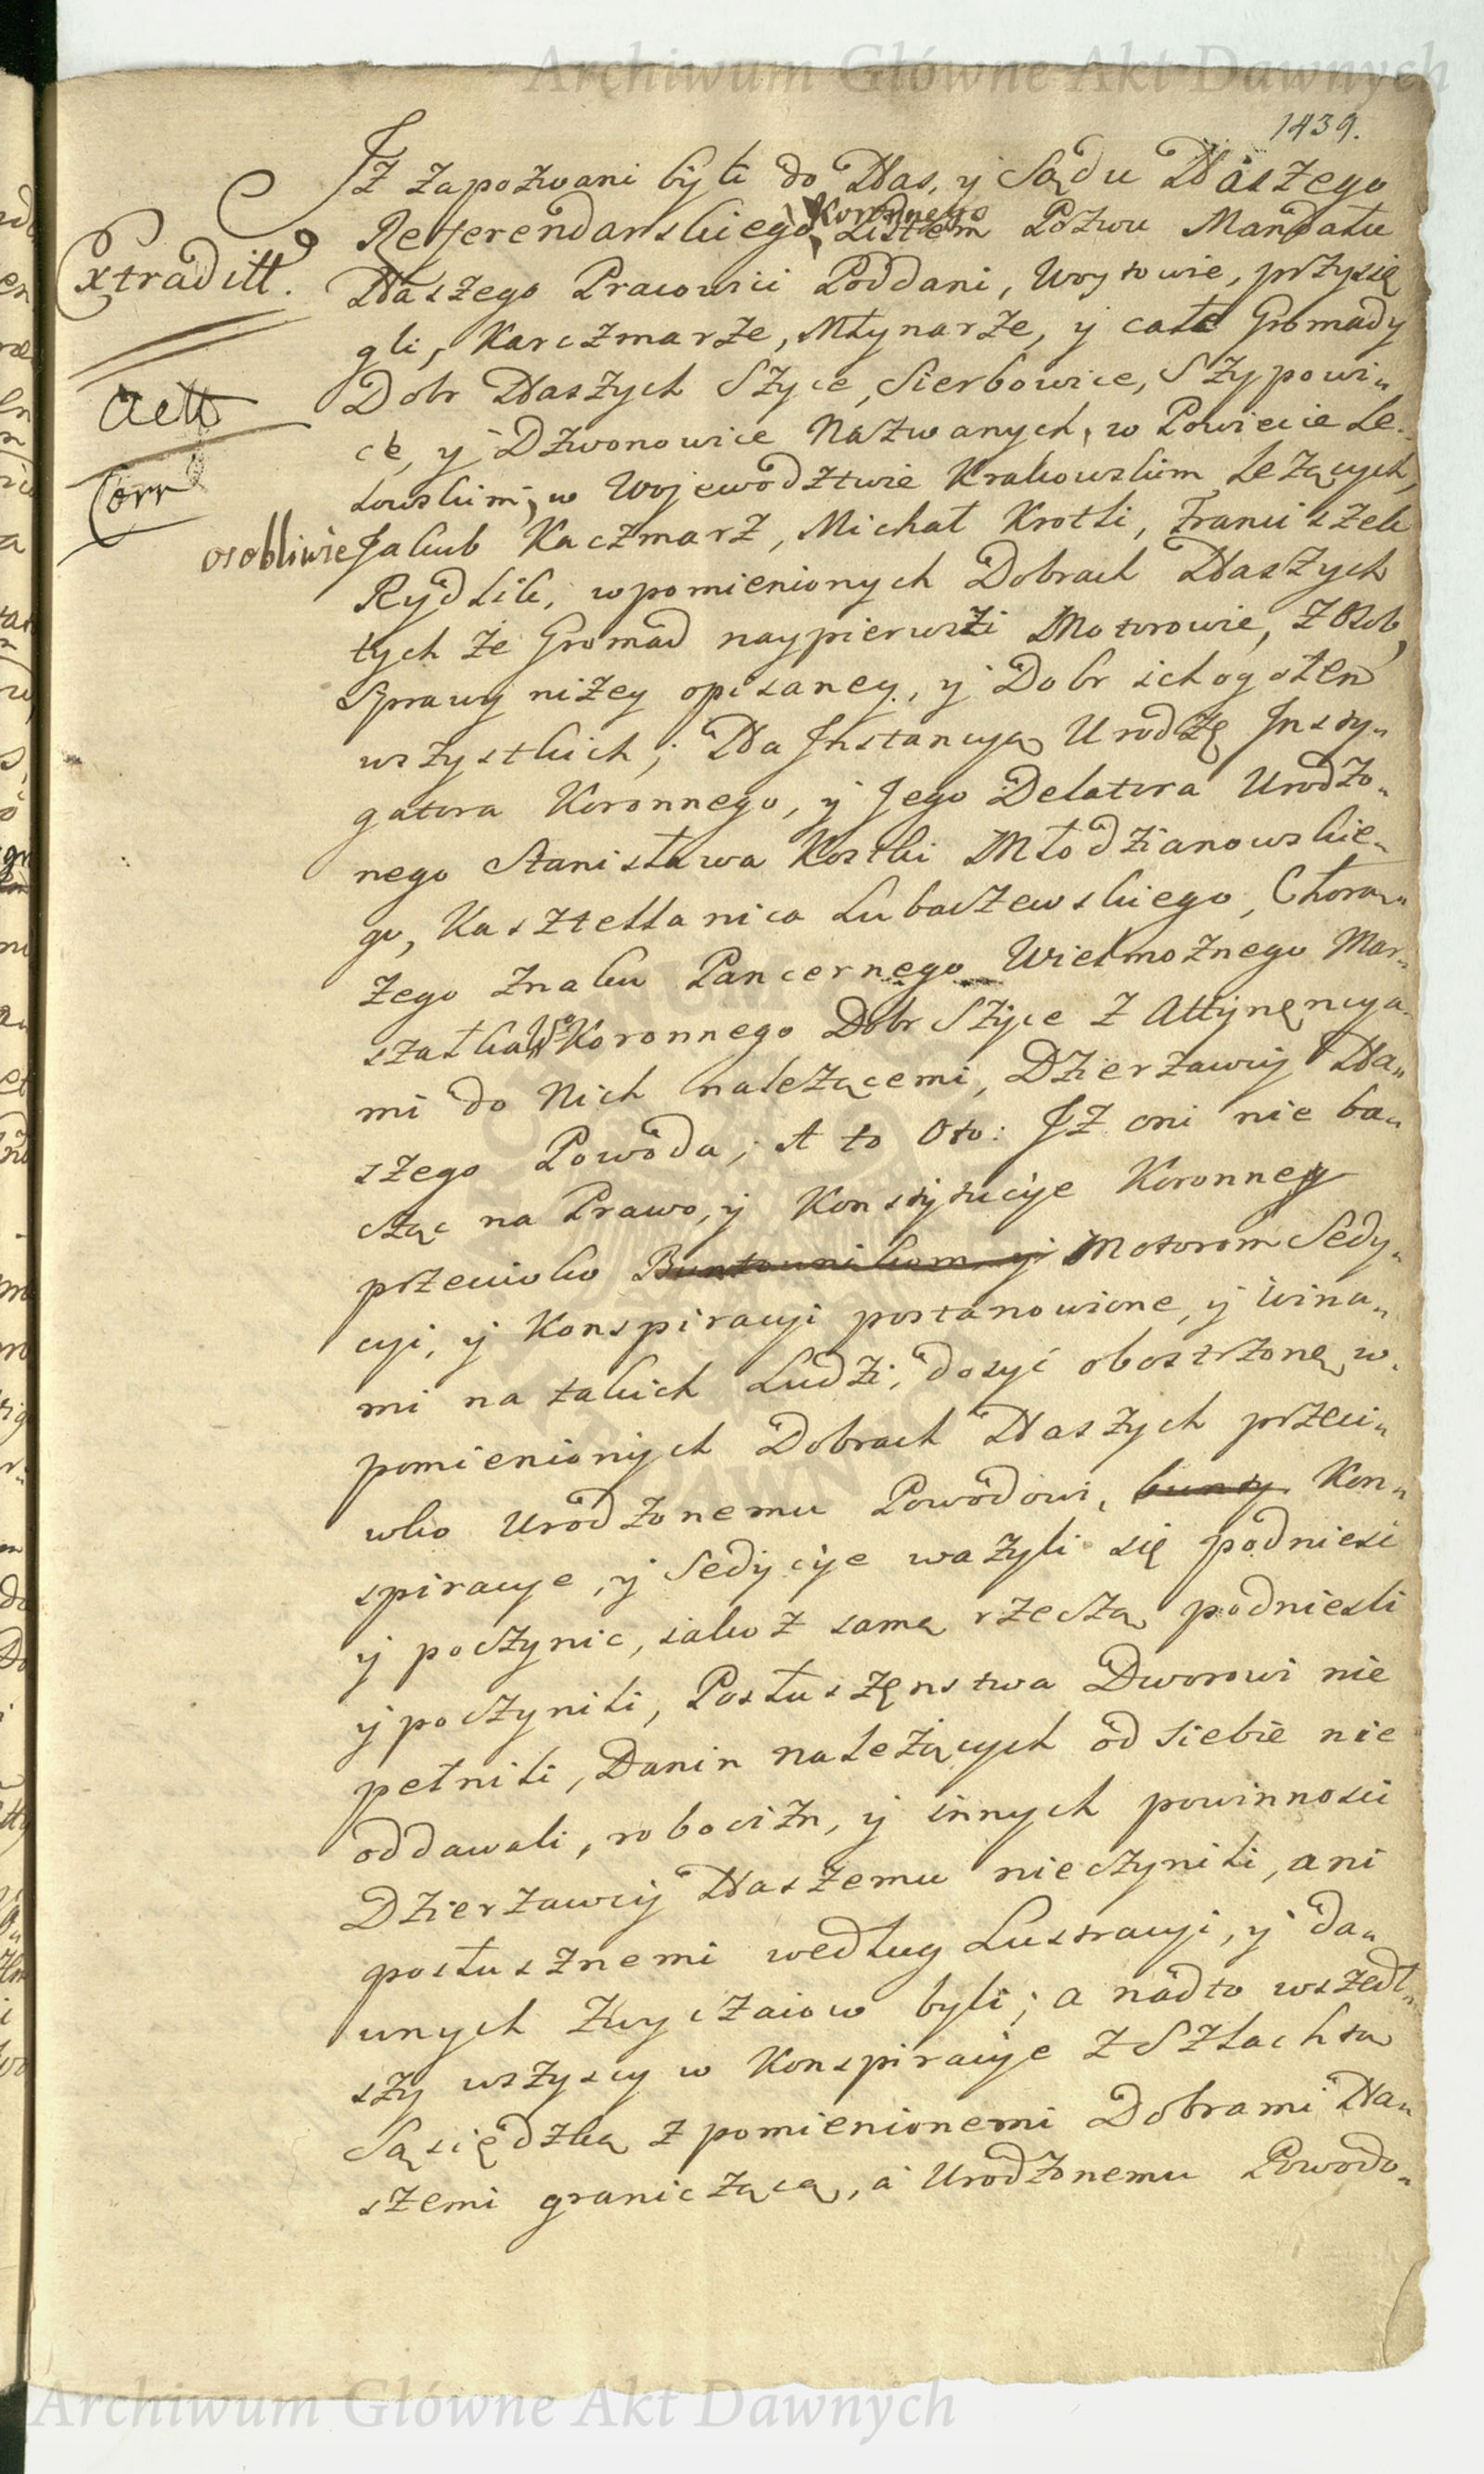 Archiwum Główne Akt Dawnych
1439.
Jż zapozwani byli do Nas, y Sądu Naszego
Referendarskiego Koronnego Listem Pozwu Mandatu
Extraditt.
Naszego Pracowici Poddani, Woytowie, przysię
gli, Karczmarze, Młynarze, y całe Gromady
Dobr Naszych Szyce, Sierbowice, Szypowi„
Corr
ce, y Dzwonowice Nazwanych, w Powiecie Le„
lowskim, w Wojewodztwie Krakowskim Leżących,
osobliwie Jakub Kaczmarz, Michał Krotli, Franciszek
Rydlik, wpomienionych Dobrach Naszych
tych że Gromad naypierwszi Motorowie, z Osob,
Sprawy niżey opisaney, y Dobr ichogołem
wszystkich; Na Jnstancyą Urodzę Jnsty„
gatora Koronnego, y Jego Delatora Urodzo„
nego Stanisława Kostki Młodzianowskie„
go, Kasztellanica Lubaczewskiego, Chorą„
żego Znaku Pancernego Wielmożnego Mar„
szałka W Koronnego Dobr Szyce z Attynęncya„
mi do Nich należącemi, Dzierżawcy Na„
szego Powoda; A to Oto: Jż oni nie ba„
cząc na Prawo, y Konstytucye Koronney
przeciwko Buntownikom y Motorom Sedy„
cyi, y Konspiracyi postanowione, y wina„
mi na takich Ludzi, dosyć obostrzonę w„
pomienionych Dobrach Naszych przeci„
wko Urodzonemu Powodowi, bunty Kon„
spiracye, y Sedycye ważyli się podniesć
y poczynic, iakoż samą rzeczą podniesli
y poczynili, Posłuszęnstwa Dworowi nie
pełnili, Danin należących od siebie nie
oddawali, robocizn, y innych powinnosci
Dzierżawcy Naszemu nieczynili, ani
posłusznemi według Lustracyi, y da„
wnych Zwyczaiow byli; a nadto wszedł„
szy wszyscy w Konspiracye z Szlachtą
Sąsiędzką z pomienionemi Dobrami Na„
szemi graniczącą, a Urodzonemu Powodo„
Archiwum Główne Akt Dawnych